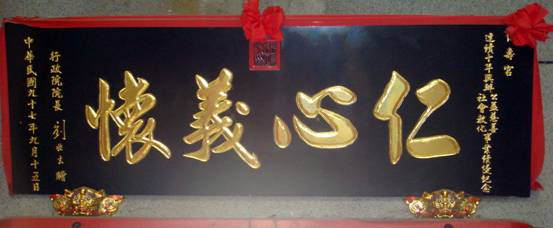 壽宮
連續十年興辦公益慈善
社會教化事業績優紀念
仁心義懷
行政院院長 劉兆玄 贈
中華民國九十七年九月十五日